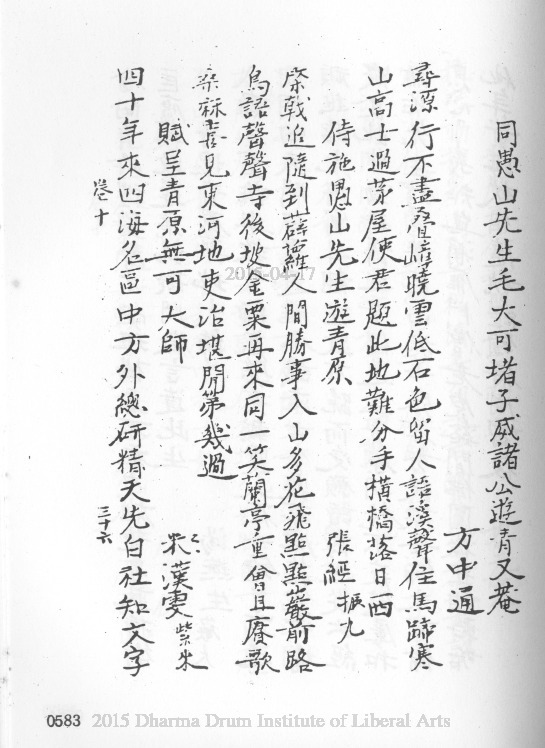 同愚山先生毛大可堵子威諸公遊青又菴
方中通
尋源行不盡疊嶂曉雲低石色留人語溪聲住馬蹄寒
山高士過茅屋使君題此地難分手橫橋落日西
侍施愚山先生遊青原
張經 振九
棨戟追隨到薜蘿人間勝事入山多花飛點點巖前路
鳥語聲聲寺後坡金粟再來同一笑蘭亭重會且賡歌
桑麻喜見東河地吏治堪開第幾過
賦呈青原無可大師
漢雯 紫來
四十年來四海名區中方外總研精天先白社知文字
卷十
三十六
2015-04-17
0583 2015 Dharma Drum Institute of Liberal Arts